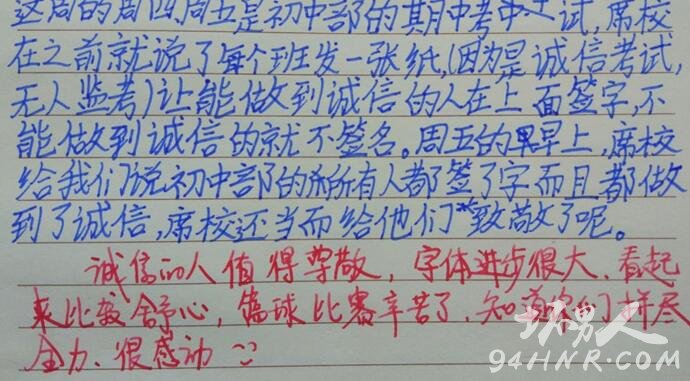 这周的周四周五是初中部的期中考中一试,席校
在之前就说了每个班发一张纸,(因为是诚信考试,
无人监考)让能做到诚信的人在上面签字,不
能做到诚信的就不签名。周五的早上,席校
给我们说初中部的所有人都签了字而且都做
到了诚信,席校还当面给他们致敬了呢。
诚信的人值得尊敬,字体进步很大、看起
来比较舒心,篮球比赛辛苦了、知道你们拼尽
全力、很感动
94HNR.COM